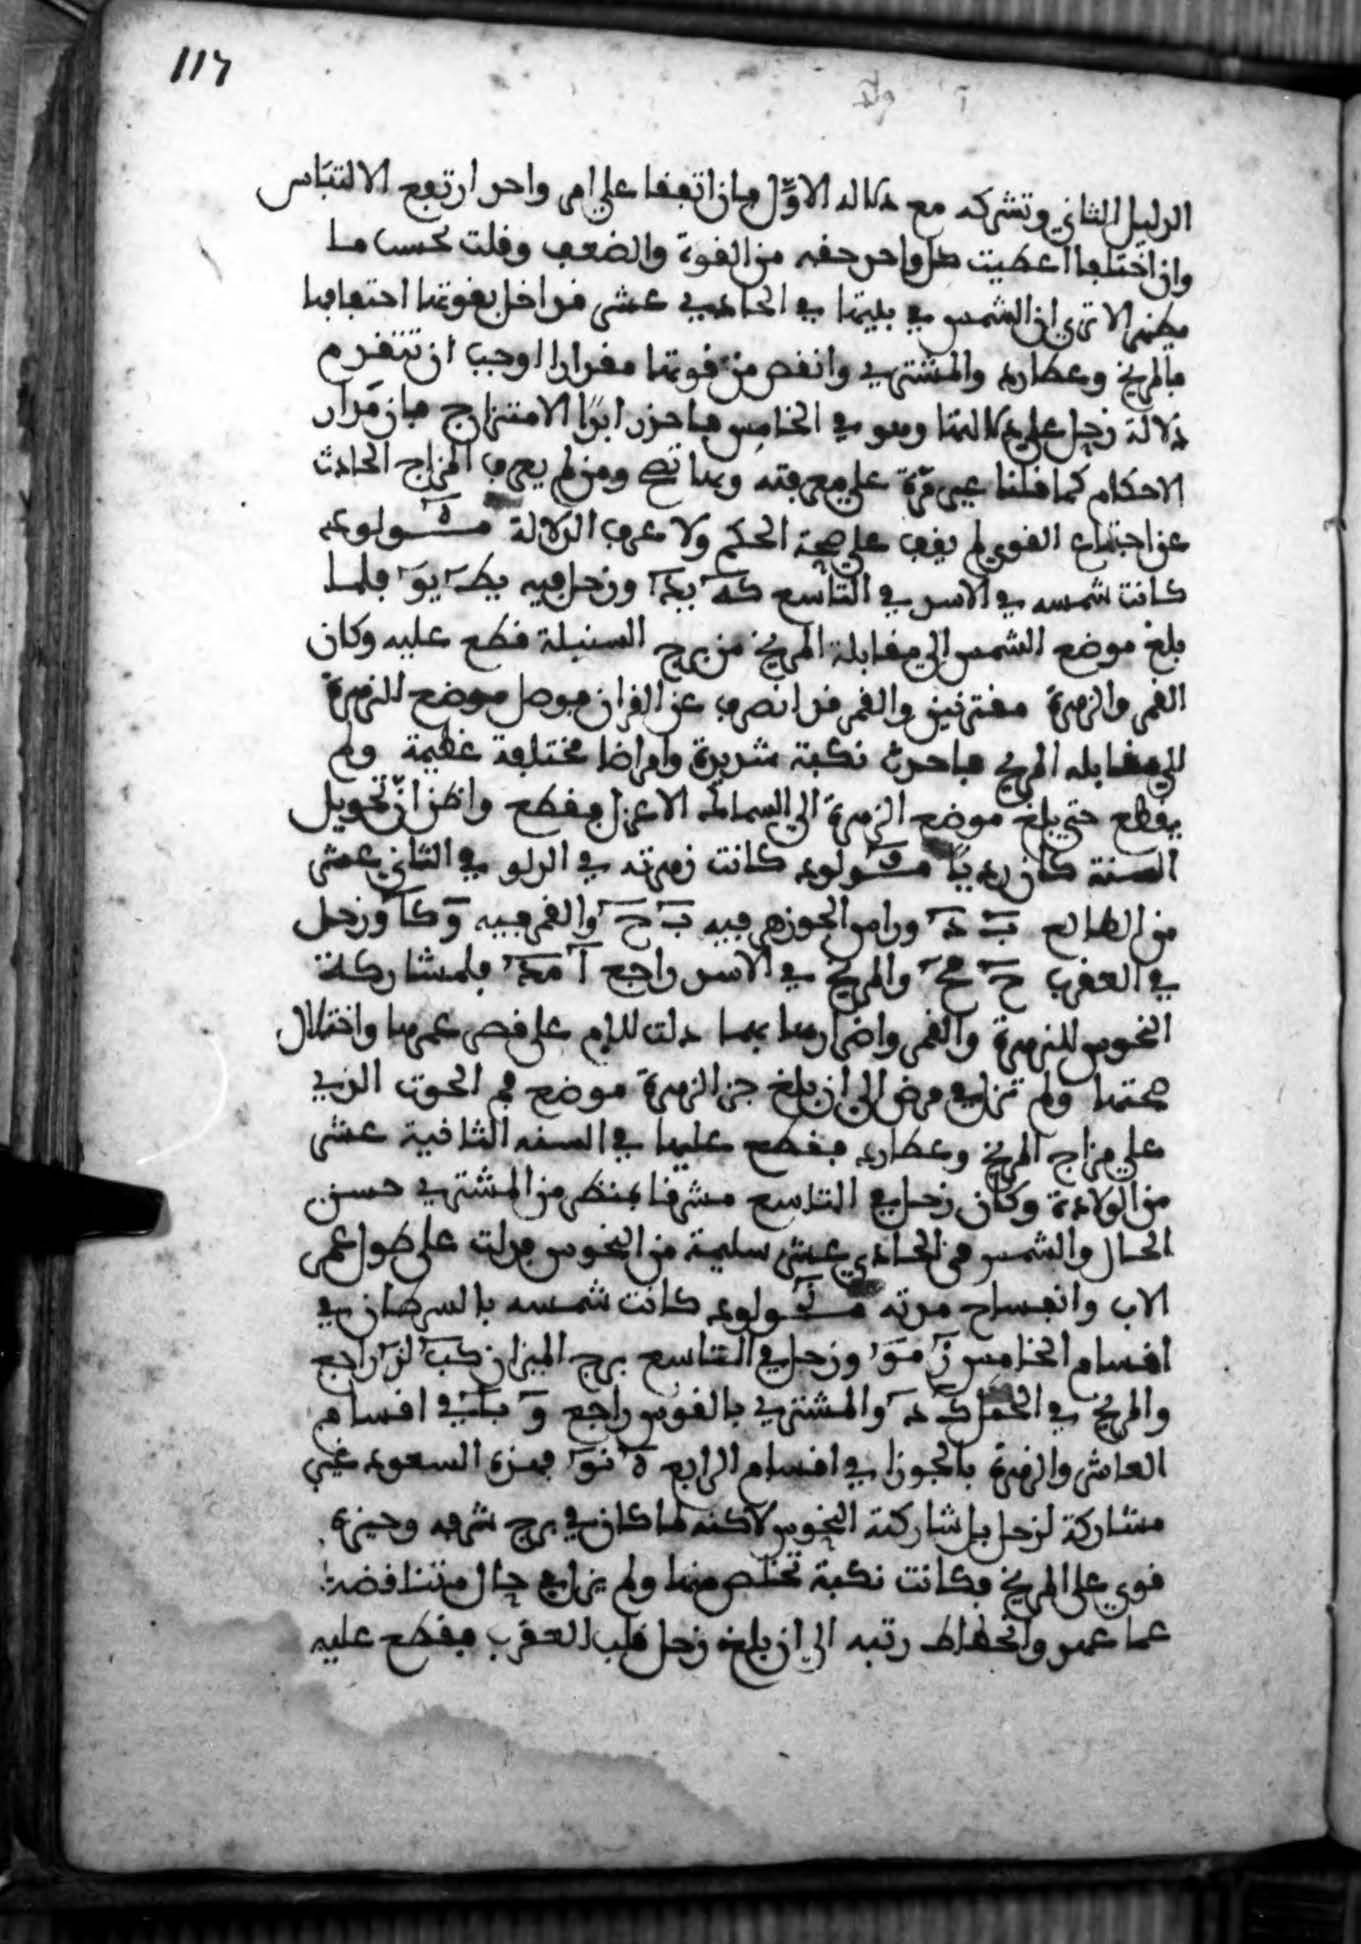 117
الدليل الثاني وتشركه مع دلالة الاول فان اتفقا على امر واحد ارتفع الالتباس
وان اختلفا اعطيت كل واحد حقه من القوة والضعف وقلت بحسب ما
الا ترى ان الشمس في بيتها في الحادي عشر قد اخل بقوتها احتفافها
بالمريخ وعطارد والمشتري وانقص من قوتها مقدارا اوجب ان تتقدم
دلالة زحل على دلالتها وهو في الخامس فاحذر ابدا الامتزاج فان مدار
الاحكام كما قلنا غير مرة على معرفته وبها تصح ومن لم يعرف المزاج الحادث
عن اجتماع القوى لم يقف على صحة الحكم ولا عرف الدلالة مولود
كانت شمسه في الاسد في التاسع كه وزحل فيه يط يو فلما
بلغ موضع الشمس الى مقابلة المريخ من برج السنبلة قطع عليه وكان
القمر والزهرة مقترنين والقمر قد انصرف عن القران فوصل موضع للزهرة
الى مقابله المريخ فاحدث نكبة شديدة وامراضا مختلفة عظيمة ولم
يقطع حتى بلغ موضع الزهرة الى السماك الاعزل فقطع واظن ان تحويل
السنة كان رديا مولود كانت زهرته في الدلو في الثاني عشر
من الطالع ب د وراس الجوزهر فيه ب ح والقمر فيه و كا وزحل
في العقرب ح مح والمريخ في الاسد راجع ا مه فلمشاركة
النحوس للزهرة والقمر واضرارهما بهما دلت للام على قصر عمرها واختلال
صحتها ولم تزل في مرض الى ان بلغ جز الزهرة موضع فم الحوت الذي
على مزاج المريخ وعطارد فقطع عليها في السنه الثانية عشر
من الولادة وكان زحل في التاسع مشرقا بنظر من المشتري حسن
الحال والشمس في الحادي عشر سليمة من النحوس فدلت على طول عمر
الاب وانفساح مدته مولود كانت شمسه بالسرطان في
اقسام الخامس ز مو وزحل في التاسع برج الميزان كب لز راجع
والمريخ في الحمل والمشتري بالقوس راجع في اقسام
العاشر والزهرة بالجوزا في اقسام الرابع ه نو فهذه السعود غير
مشاركة لزحل بل شاركته النحوس لاكنه لما كان في برج شرفه وحيزه
قوي على المريخ فكانت نكبة تخلص منها ولم يزل في حال متناقضة
عما عهد وانحطاط رتبه الى ان بلغ زحل قلب العقرب فقطع عليه